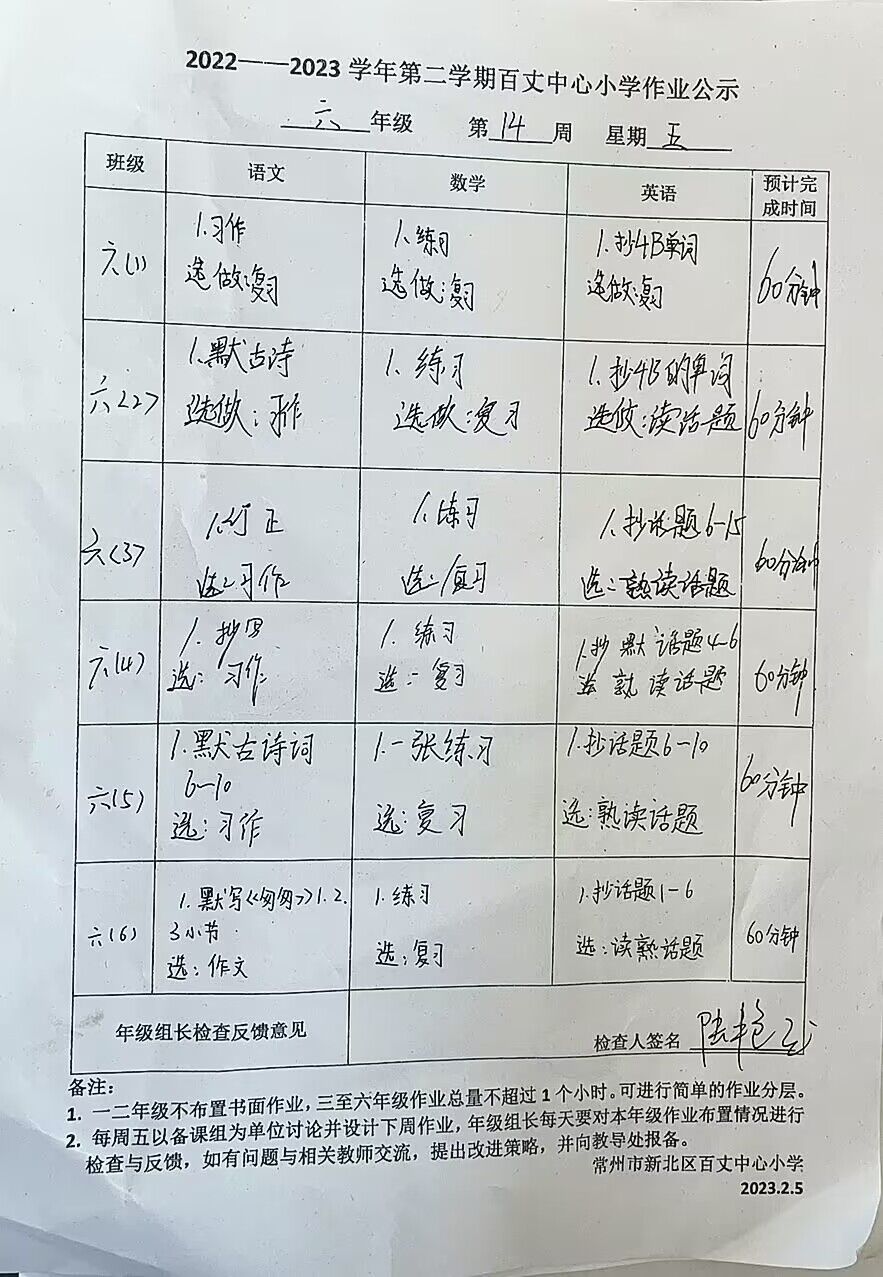 2022——2023 学年第二学期百丈中心小学作业公示
六 年级 第 14 周 星期 五
班级 语文 数学 英语 预计完
成时间
六(1) 1.习作 1.练习 1.抄4B单词 60分钟
选做:复习 选做:复习 选做:复习
六<2> 1.默古诗 1.练习 1.抄4B的单词 60分钟
选做:习作 选做:复习 选做:读话题
六<3> 1.订正 1.练习 1.抄话题6-15 60分钟
选:习作 选:复习 选:熟读话题
六(4) 1.抄写 1.练习 1.抄默话题4-6 60分钟
选:习作 选:复习 选 熟读话题
六(5) 1.默古诗词 1.一张练习 1.抄话题6-10 60分钟
6-10
选:习作 选:复习 选:熟读话题
六(6) 1.默写《匆匆》1.2. 1.练习 1.抄话题1-6 60分钟
3小节
选:作文 选:复习 选:读熟话题
年级组长检查反馈意见 检查人签名
备注:
1. 一二年级不布置书面作业，三至六年级作业总量不超过 1 个小时。可进行简单的作业分层。
2. 每周五以备课组为单位讨论并设计下周作业，年级组长每天要对本年级作业布置情况进行
检查与反馈，如有问题与相关教师交流，提出改进策略，并向教导处报备。
常州市新北区百丈中心小学
2023.2.5